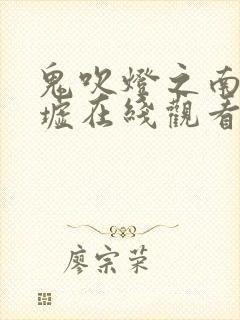 鬼吹燈之南
墟在綫觀看
廖宗荣